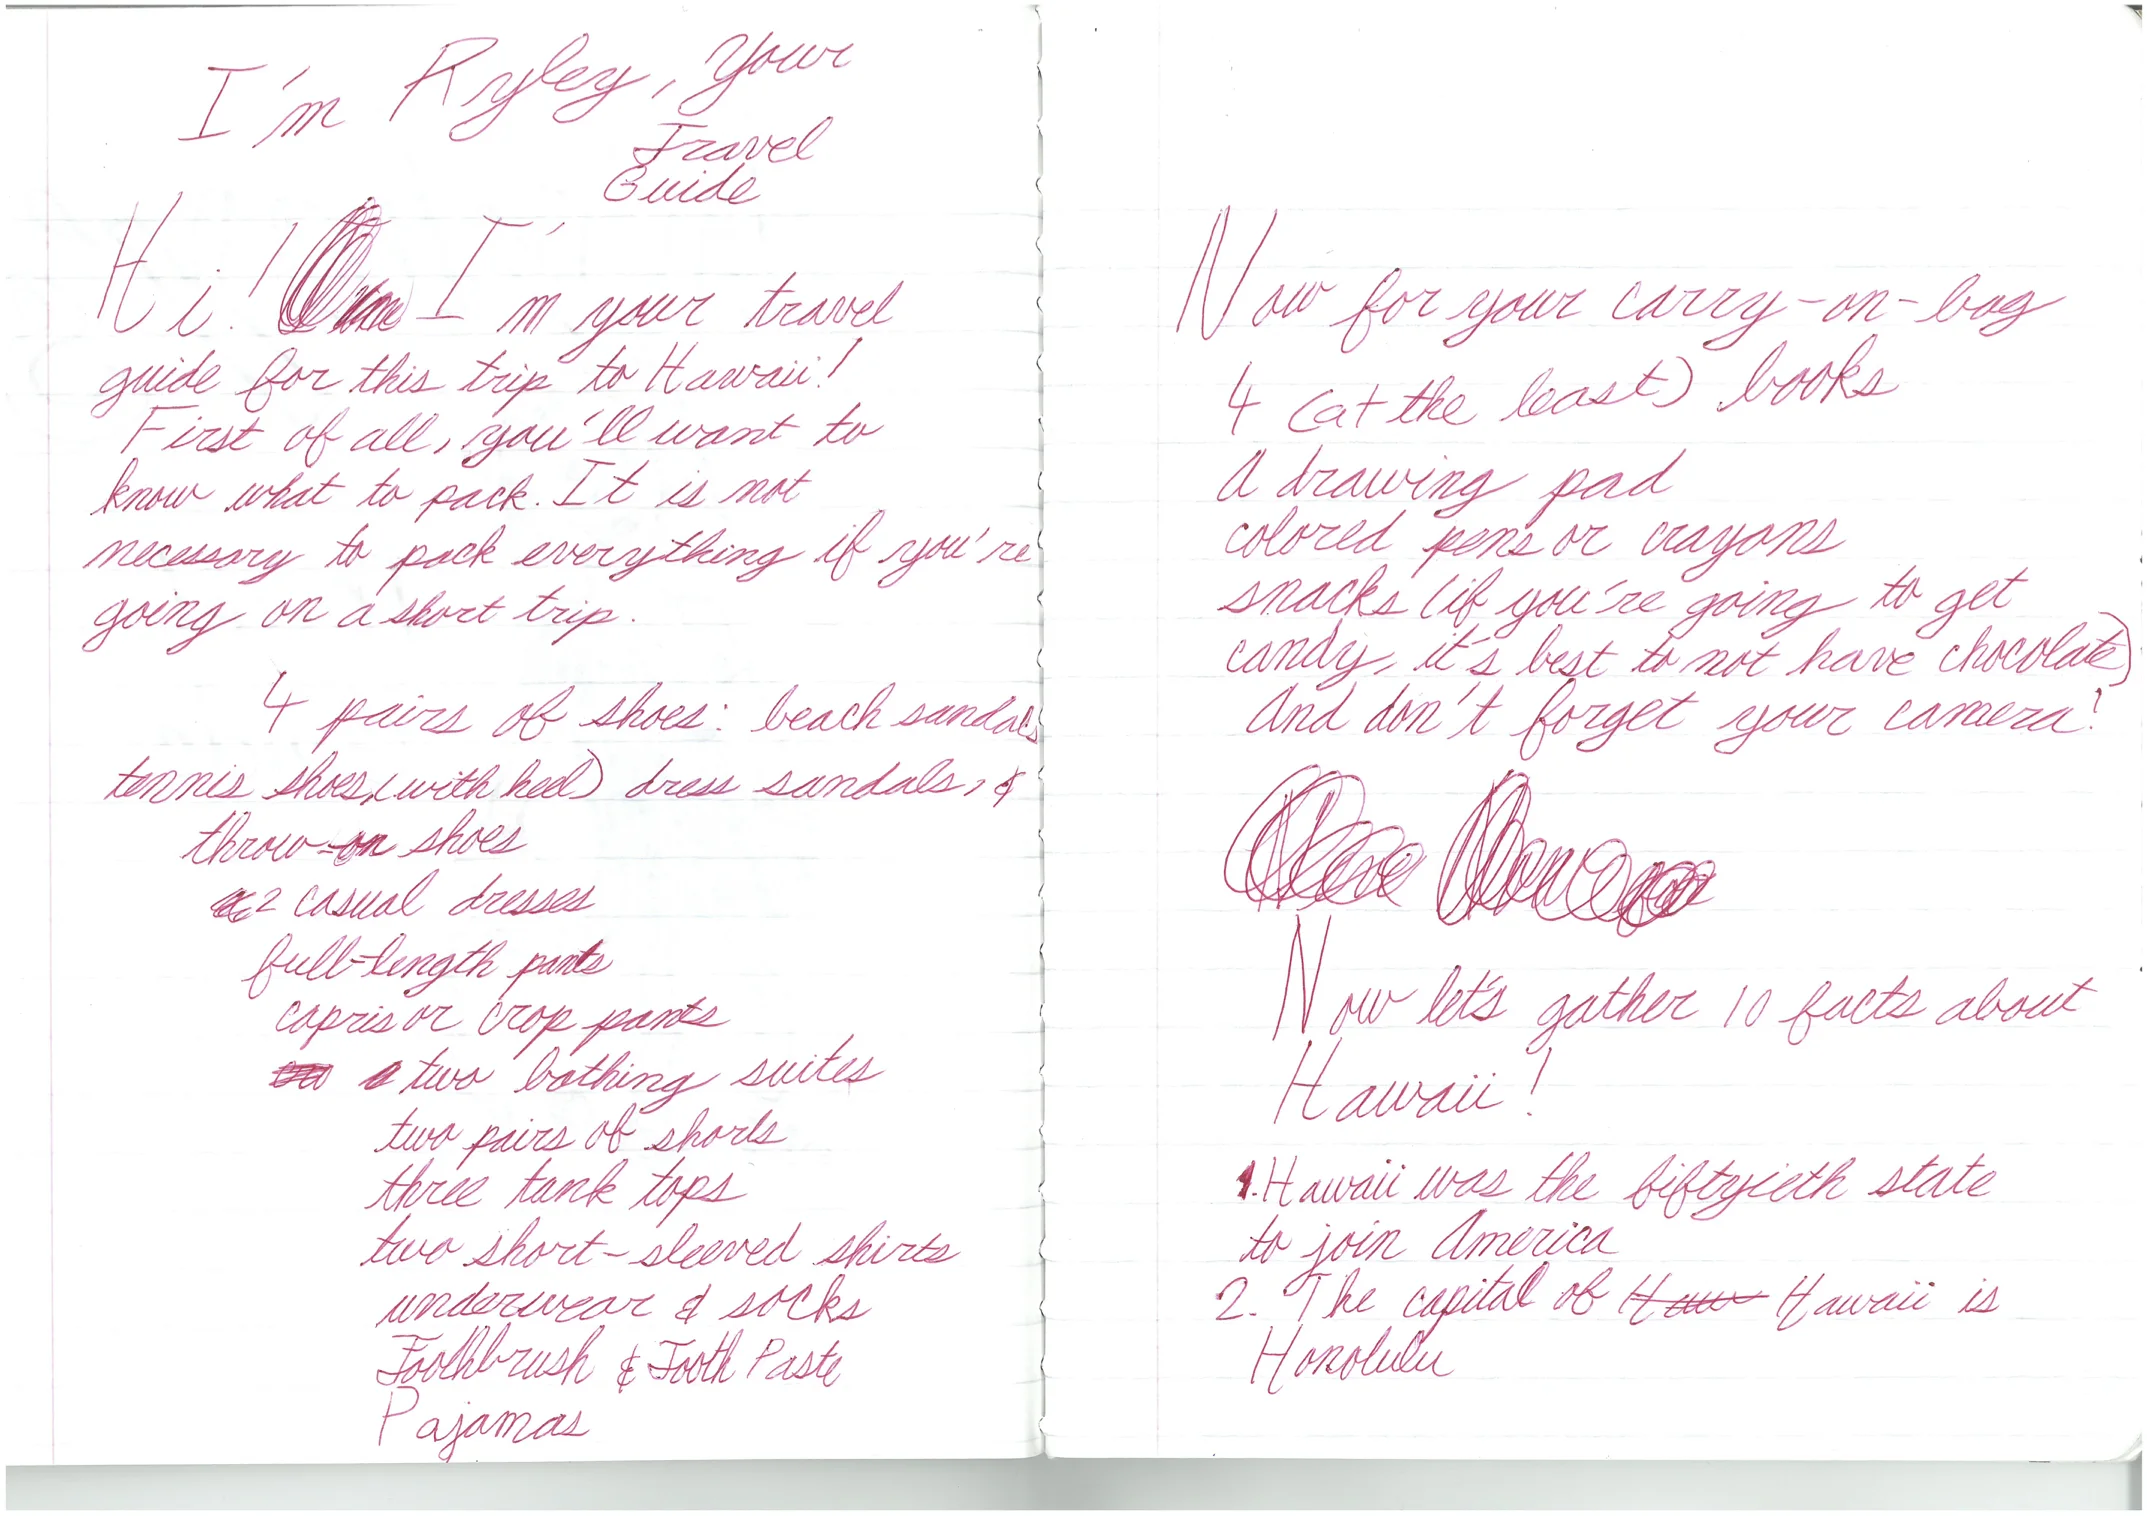 I'm Ryley, your
Travel
Guide
Hi! I'm your travel
guide for this trip to Hawaii!
First of all, you'll want to
know what to pack. It is not
necessary to pack everything if you're
going on a short trip.
4 pairs of shoes: beach sandals
tennis shoes, (with heel) dress sandals, &
throw-on shoes
2 casual dresses
full-length pants
capris or crop pants
two bathing suites
two pairs of shorts
three tank tops
two short-sleeved shirts
underwear & socks
Toothbrush & Tooth Paste
Pajamas
Now for your carry-on-bag
4 (at the least) books
A drawing pad
colored pens or crayons
snacks (if you're going to get
candy, it's best to not have chocolate)
And don't forget your camera!
Now let's gather 10 facts about
Hawaii!
1. Hawaii was the fiftyieth state
to join America
2. The capital of Haw Hawaii is
Honolulu